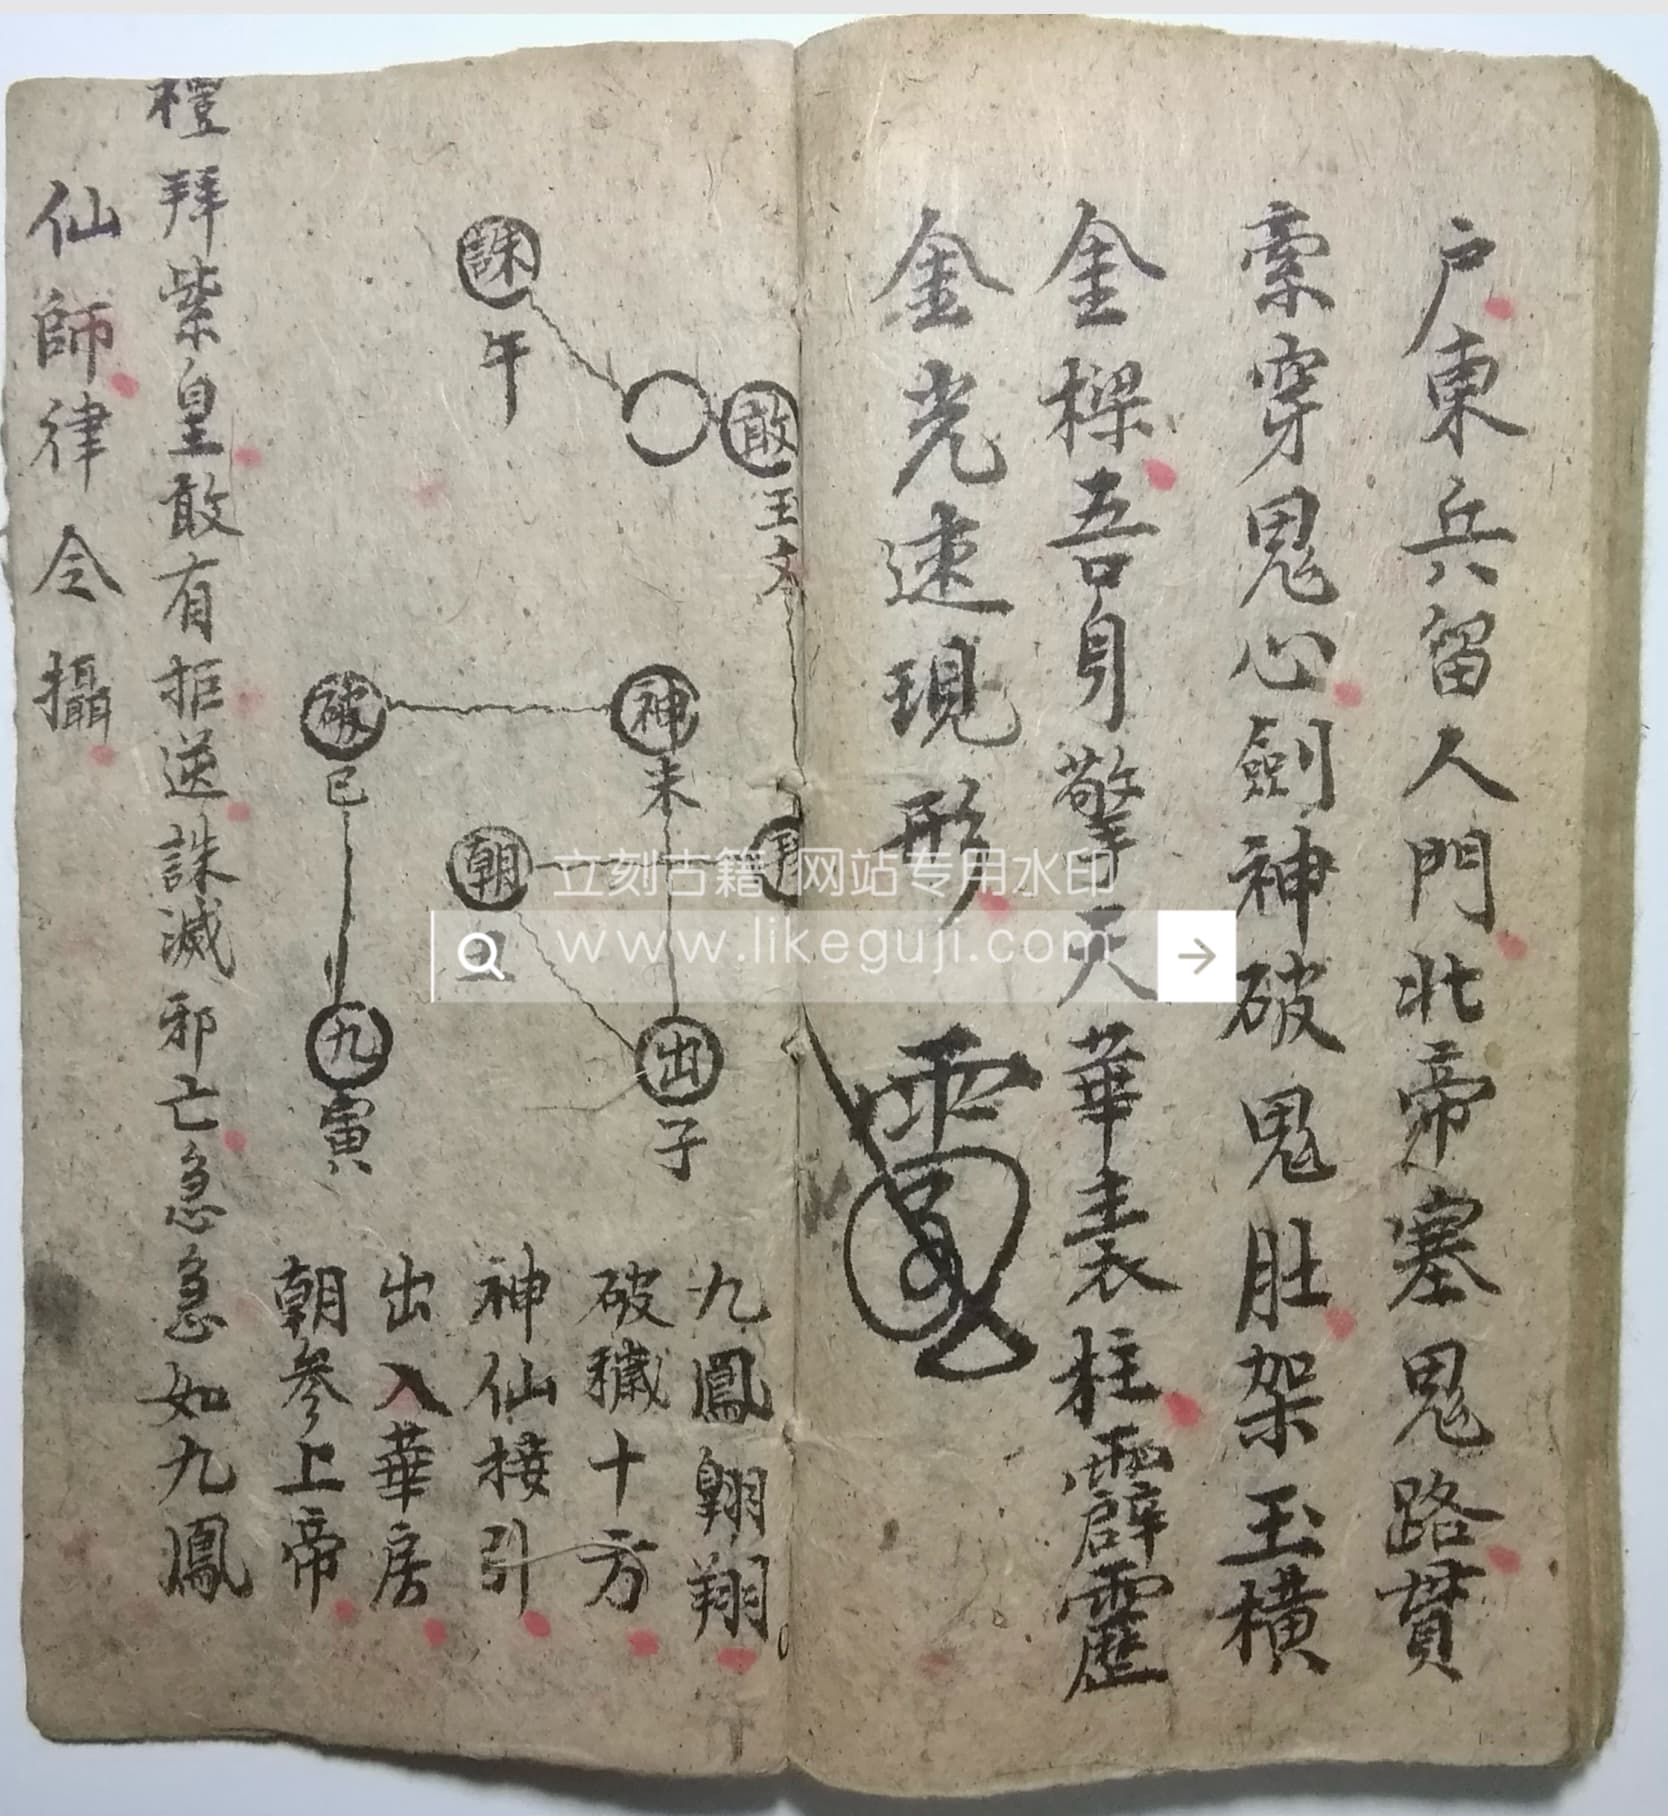 户東兵留人門北帝塞鬼路貫
索穿鬼心劍神破鬼肚架玉橫
金樑吾身擎天華表柱霹靂
金光速現形
敢
王文
誅
午
神
未
破
巳
朝
丑
出
子
九
寅
九鳳翱翔
破穢十方
神仙接引
出入華房
朝參上帝
禮拜紫皇敢有拒逆誅滅邪亡急急如九鳳
仙師律令攝
立刻古籍 网站专用水印
www.likeguji.com